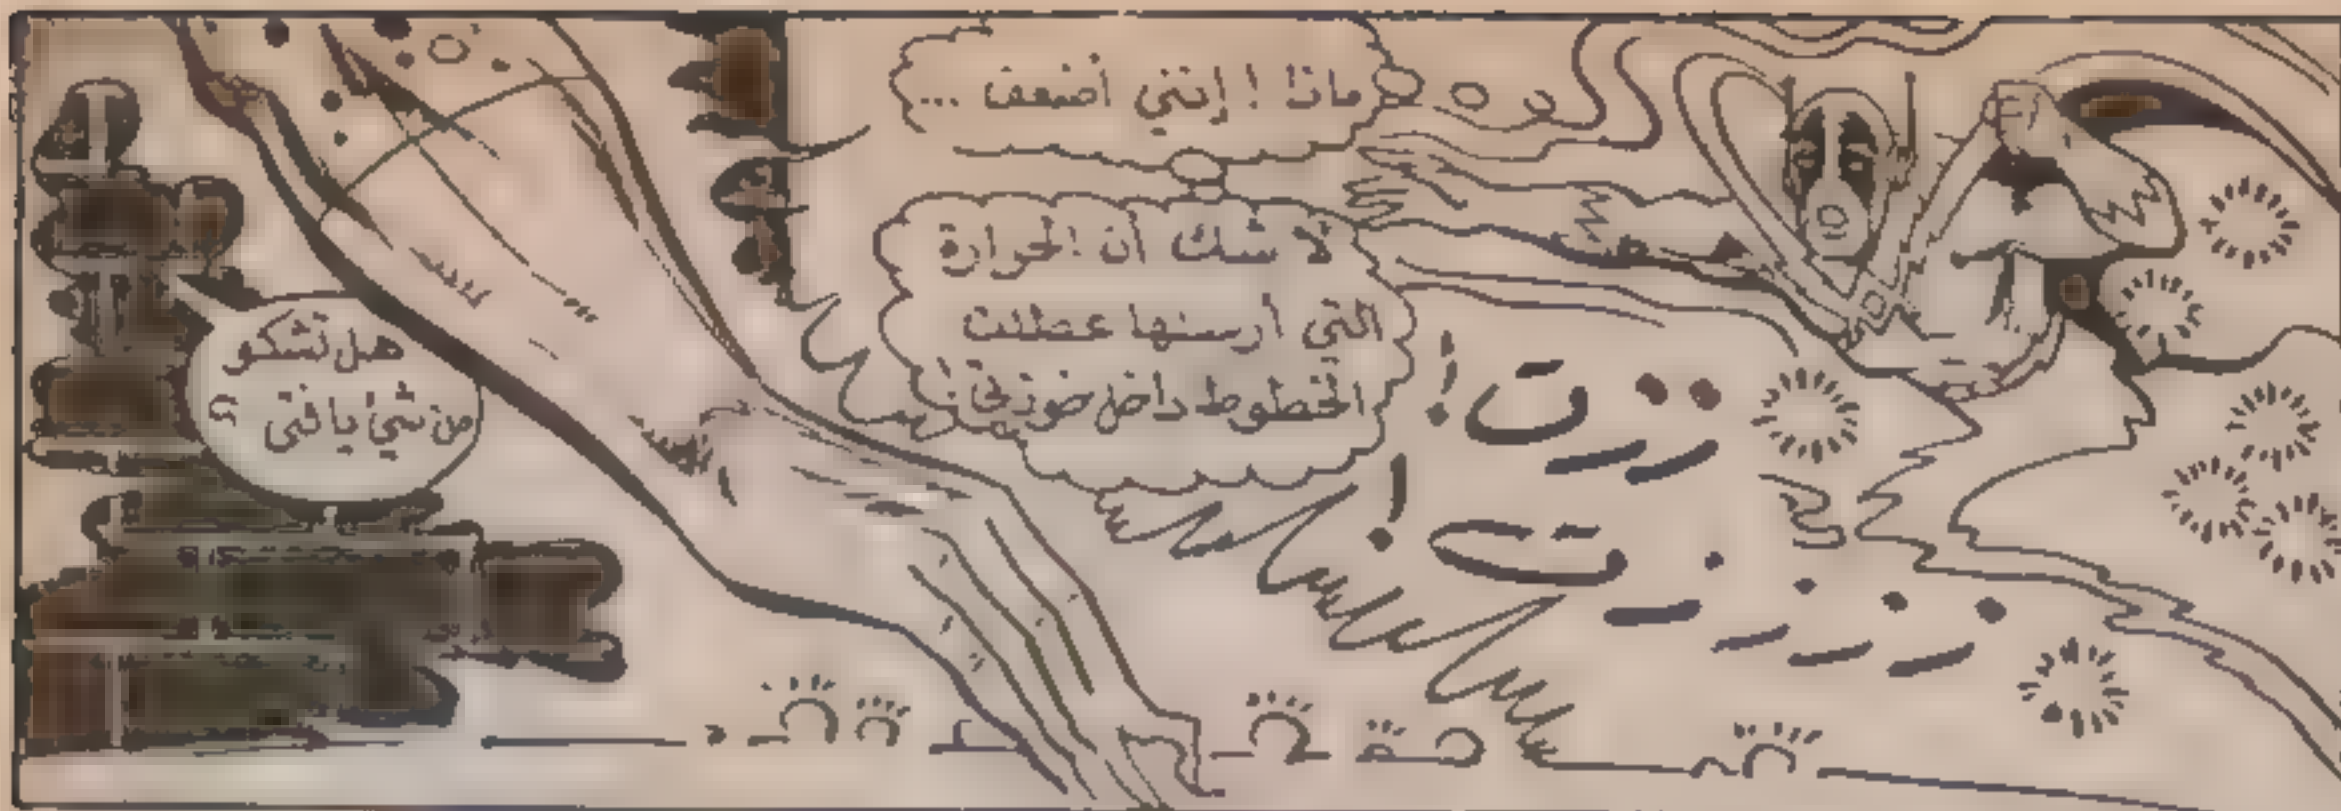 ماذا ! إنني أضعف ...
لا شك أن الحرارة
التي أرسلها عطلت
الخطوط داخل خوذتي !
زرت !
ززززت !
هل تشكو
من شيء يا فتى ؟